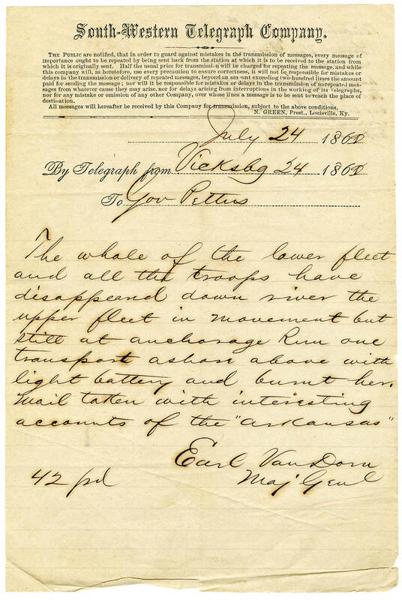 South-Western Telegraph Company.
THE PUBLIC are notified, that in order to guard against mistakes in the transmission of messages, every message of
importance ought to be repeated by being sent back from the station at which it is to be received to the station from
which it is originally sent. Half the usual price for transmission will be charged for repeating the message, and while
this company will, as heretofore, use every precaution to ensure correctness, it will not be responsible for mistakes or
delays in the transmission or delivery of repeated messages, beyond an amount exceeding two hundred times the amount
paid for sending the message; nor will it be responsible for mistakes or delays in the transmission of unrepeated
messages from whatever cause they may arise, nor for delays arising from interruptions in the working of its Telegraphs,
nor for any mistake or omission of any other Company, over whose lines a message is to be sent to reach the place of
destination.
All messages will hereafter be received by this Company for transmission, subject to the above conditions.
N. GREEN, Prest., Louisville, Ky.
July 24 1862
By Telegraph from Vicksbg 24 1862
To Gov Pettus
The whole of the lower fleet
and all the troops have
disappeard down river the
upper fleet in movement but
still at anchorage Run one
transport ashore above with
light battery and burnt her.
Mail taken with interesting
accounts of the "Arkansas"
Earl Van Dorn
42 pd Maj Genl